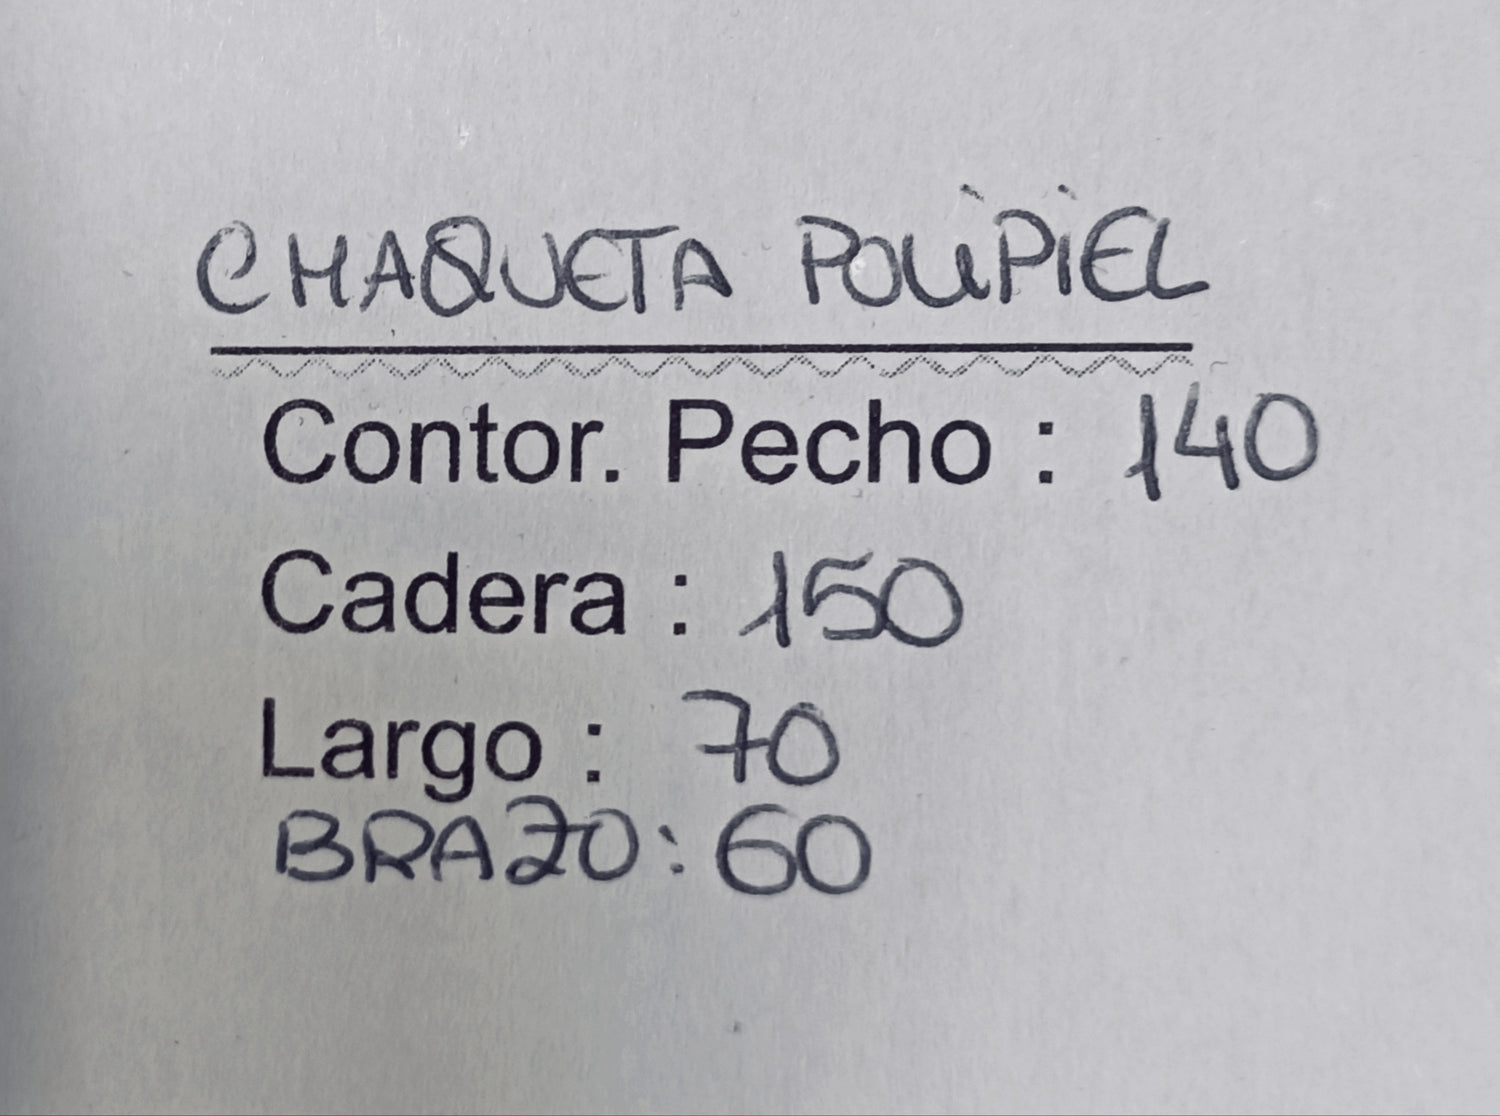 CHAQUETA POLIPIEL
Contor. Pecho : 140
Cadera : 150
Largo : 70
BRAZO : 60